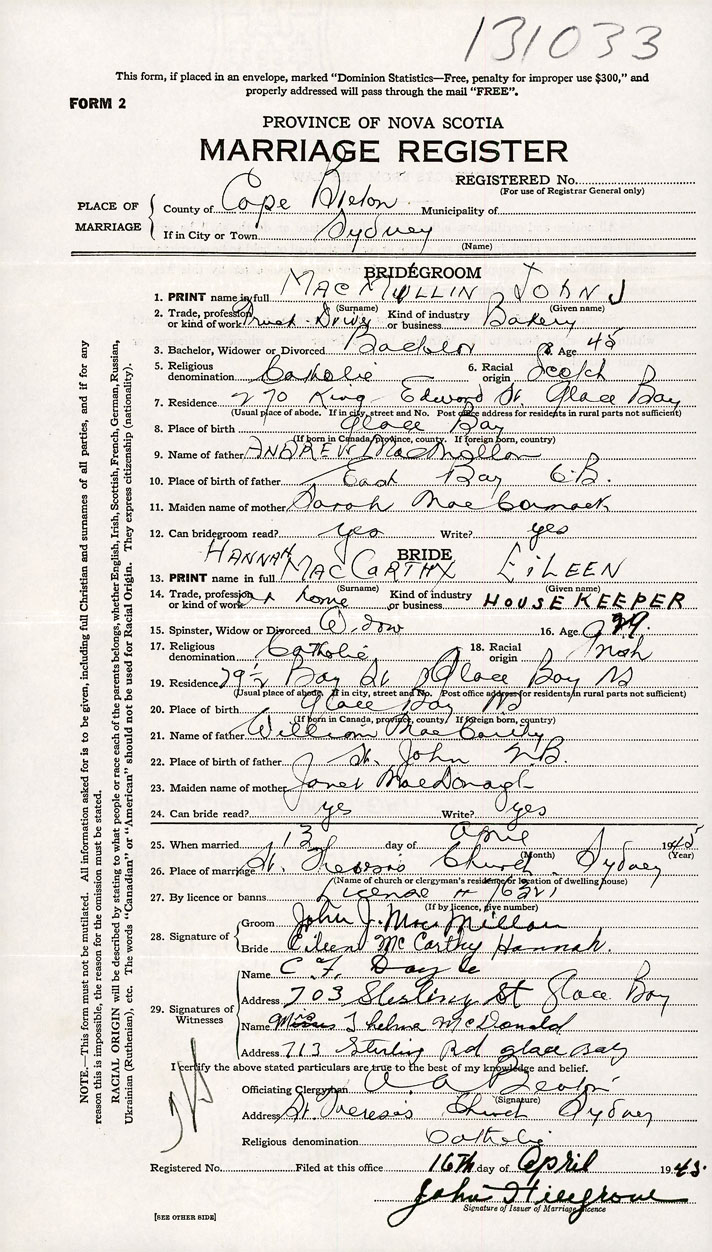 131033
This form, if placed in an envelope, marked "Dominion Statistics—Free, penalty for improper use $300," and
properly addressed will pass through the mail "FREE".
FORM 2
PROVINCE OF NOVA SCOTIA
MARRIAGE REGISTER
REGISTERED No.
(For use of Registrar General only)
PLACE OF MARRIAGE
County of Cape Breton Municipality of
If in City or Town Sydney
(Name)
BRIDEGROOM
1. PRINT name in full MACMULLIN JOHN J
(Surname) (Given name)
2. Trade, profession or kind of work Truck-Driver Kind of industry or business Bakery
3. Bachelor, Widower or Divorced Bachelor Age 45
5. Religious denomination Catholic 6. Racial origin Scotch
7. Residence 270 King-Edward St. Glace Bay
(Usual place of abode. If in city, street and No. Post office address for residents in rural parts not sufficient)
8. Place of birth Glace Bay
(If born in Canada, province, county. If foreign born, country)
9. Name of father ANDREW MacMullan
10. Place of birth of father East Bay C.B.
11. Maiden name of mother Sarah MacCormack
12. Can bridegroom read? yes Write? yes
BRIDE
HANNAH
13. PRINT name in full MACCARTHY EILEEN
(Surname) (Given name)
14. Trade, profession or kind of work at home Kind of industry or business HOUSEKEEPER
15. Spinster, Widow or Divorced Widow 16. Age 29.
17. Religious denomination Catholic 18. Racial origin Irish
19. Residence 79½ Bay St. Glace Bay NS
(Usual place of abode. If in city, street and No. Post office address for residents in rural parts not sufficient)
20. Place of birth Glace Bay NS
(If born in Canada, province, county. If foreign born, country)
21. Name of father William MacCarthy
22. Place of birth of father St. John N.B.
23. Maiden name of mother Janet MacDonagh
24. Can bride read? yes Write? yes
25. When married 13 day of April 1945
(Month) (Year)
26. Place of marriage St. Theresis Church Sydney
(Name of church or clergyman's residence or location of dwelling house)
27. By licence or banns License # 76321
(If by licence, give number)
28. Signature of
Groom John J. MacMillan
Bride Eileen McCarthy Hannah.
29. Signatures of Witnesses
Name C. F. Doyle
Address 703 Sterling St Glace Bay
Name Thelma McDonald
Address 713 Sterling Rd glace Bay
I certify the above stated particulars are true to the best of my knowledge and belief.
Officiating Clergyman Beaton
(Signature)
Address St. Theresis Church Sydney
Religious denomination Catholic
Registered No. Filed at this office 16th day of April 1945.
John Hillgrove
Signature of Issuer of Marriage Licence
[SEE OTHER SIDE]
NOTE.—This form must not be mutilated. All information asked for is to be given, including full Christian and surnames of all parties, and if for any
reason this is impossible, the reason for the omission must be stated.
RACIAL ORIGIN will be described by stating to what people or race each of the parents belongs, whether English, Irish, Scottish, French, German, Russian,
Ukrainian (Ruthenian), etc. The words "Canadian" or "American" should not be used for Racial Origin. They express citizenship (nationality).